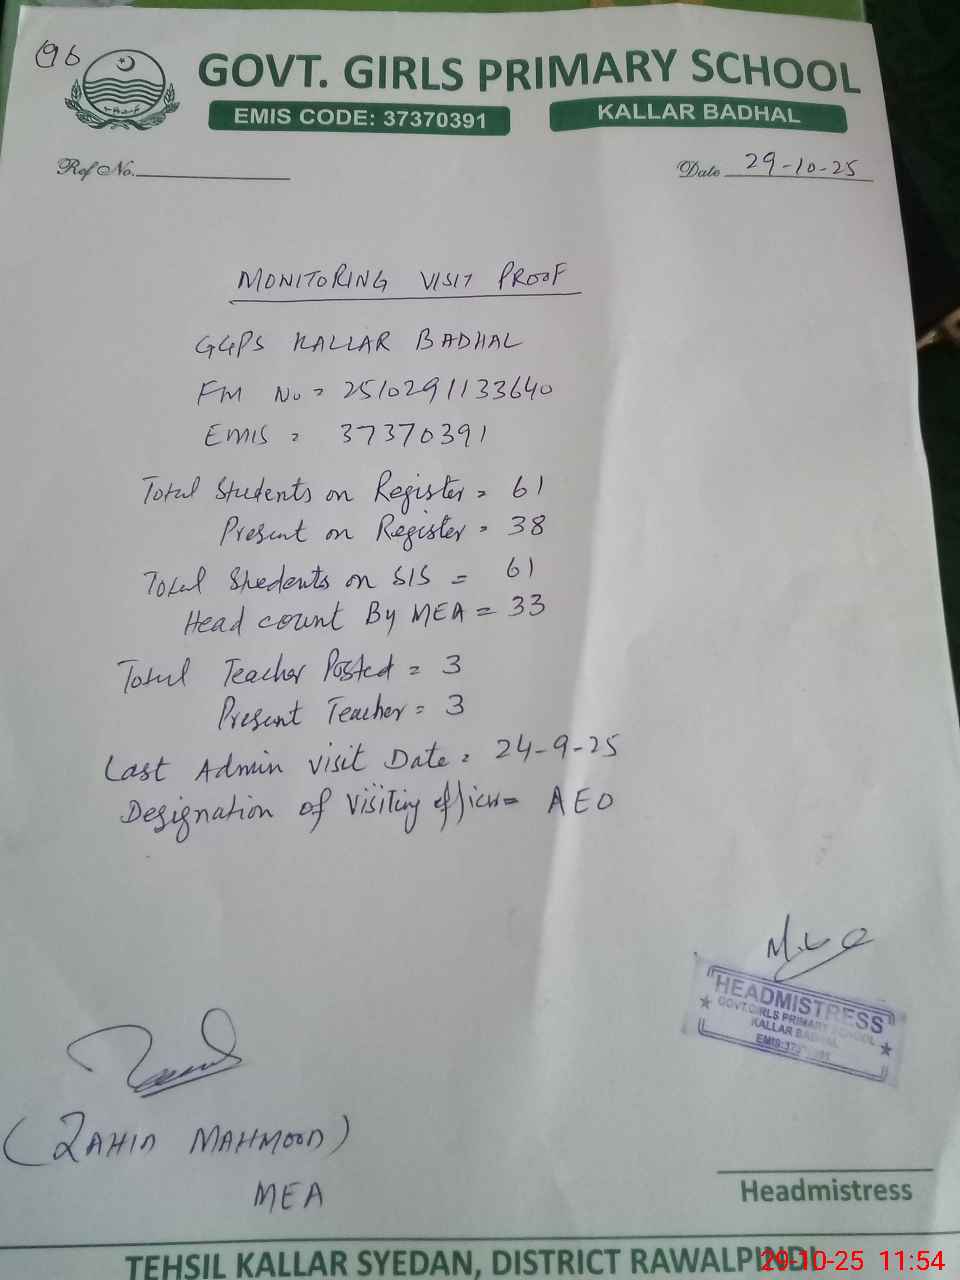 96
GOVT. GIRLS PRIMARY SCHOOL
EMIS CODE: 37370391 KALLAR BADHAL
Ref No. Date 29-10-25
MONITORING VISIT PROOF
GGPS KALLAR BADHAL
FM No = 2510291133640
EMIS = 37370391
Total Students on Register = 61
Present on Register = 38
Total Students on SIS = 61
Head count By MEA = 33
Total Teacher Posted = 3
Present Teacher = 3
Last Admin visit Date = 24-9-25
Designation of Visiting officer = AEO
HEADMISTRESS
GOVT. GIRLS PRIMARY SCHOOL
KALLAR BADHAL
(ZAHID MAHMOOD)
MEA
Headmistress
TEHSIL KALLAR SYEDAN, DISTRICT RAWALPINDI
29-10-25 11:54